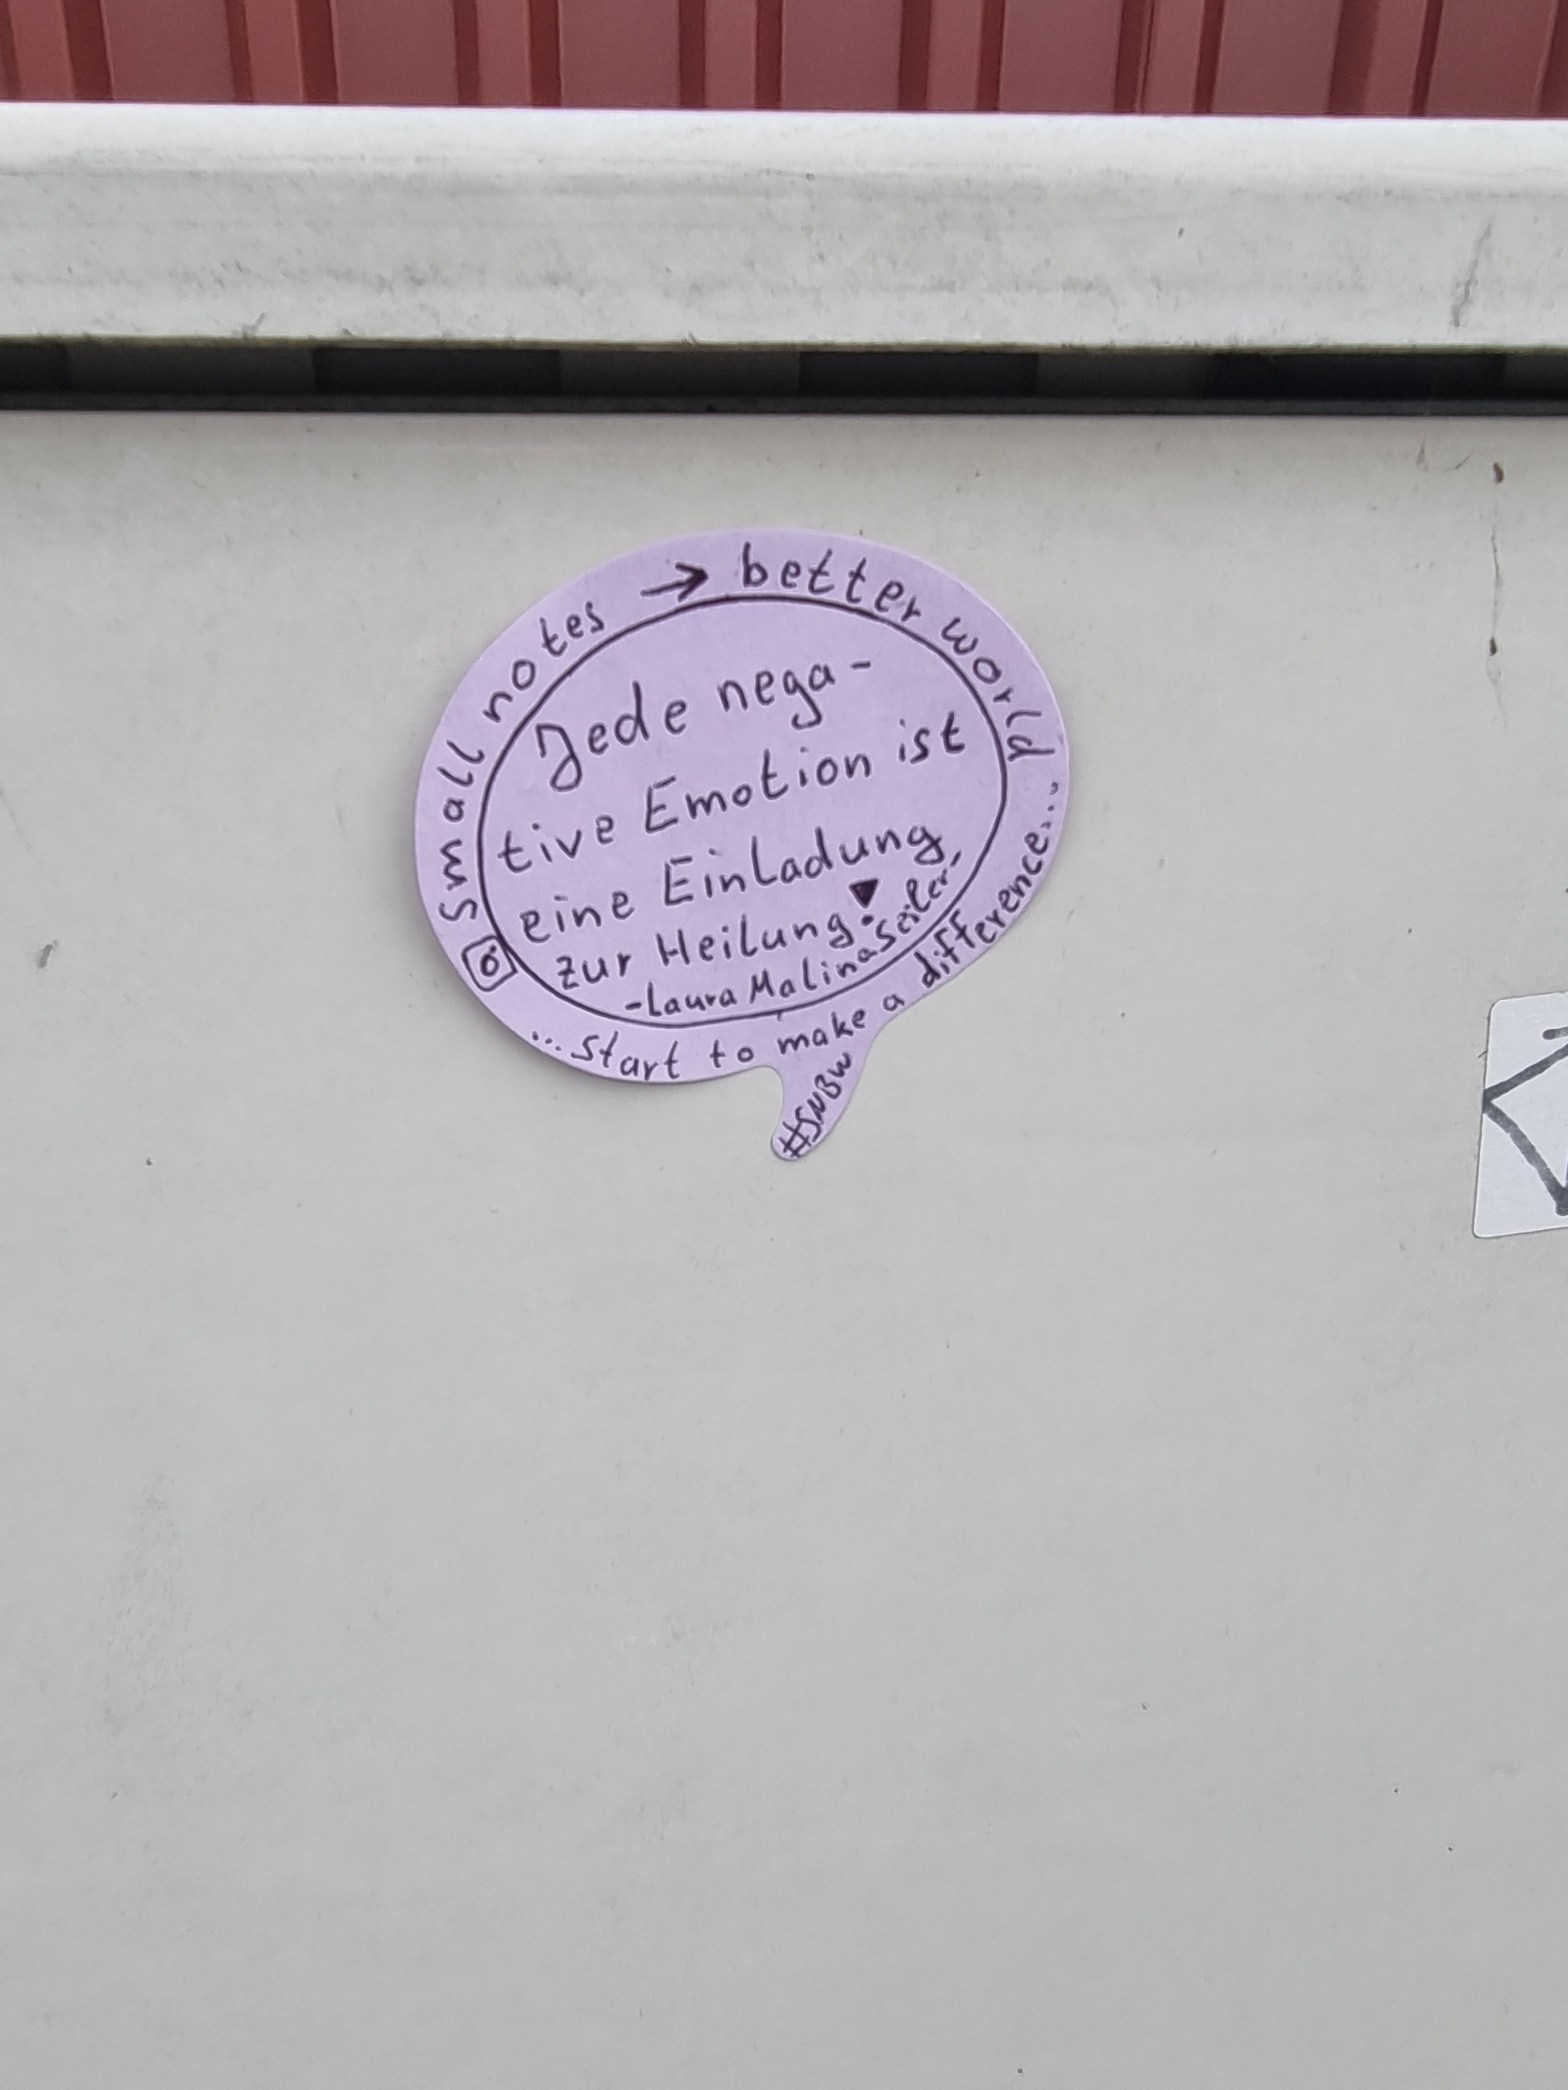 Small notes → better world
Jede nega-
tive Emotion ist
eine Einladung
zur Heilung!
-Laura Malina Seiler-
...start to make a difference...
#SNBW